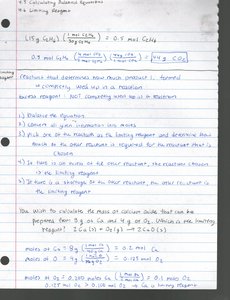 4.5 Calculating Balanced Equations
4.6 Limiting Reagent
(15g C2H6) (1 mol C2H6 / 30g C2H6) = 0.5 mol C2H6
0.5 mol C2H6 (4 mol CO2 / 2 mol C2H6) (44g CO2 / 1 mol CO2) = 44g CO2
reactant that determines how much product is formed
→ completely used up in a reaction
excess reagent: NOT completely used up in a reaction
1.) Balance the equation
2.) Convert all given information into moles
3.) Pick one of the reactants as the limiting reagent and determine how
much of the other reactant is required for the reactant that is
chosen
4.) If there is an excess of the other reactant, the reactant chosen
is the limiting reagent
5.) If there is a shortage of the other reactant, the other reactant is
the limiting reagent
You wish to calculate the mass of calcium oxide that can be
prepared from 8g of Ca and 4g of O2. Which is the limiting
reagent? 2Ca(s) + O2(g) → 2CaO(s)
moles of Ca = 8g (1 mol Ca / 40g Ca) = 0.2 mol Ca
moles of O = 4g (1 mol O2 / 32g O2) = 0.125 mol O2
moles of O2 = 0.200 moles Ca (1 mol O2 / 2 mol Ca) = 0.1 moles O2
0.125 mol O2 > 0.100 mol O2 → Ca limiting reagent